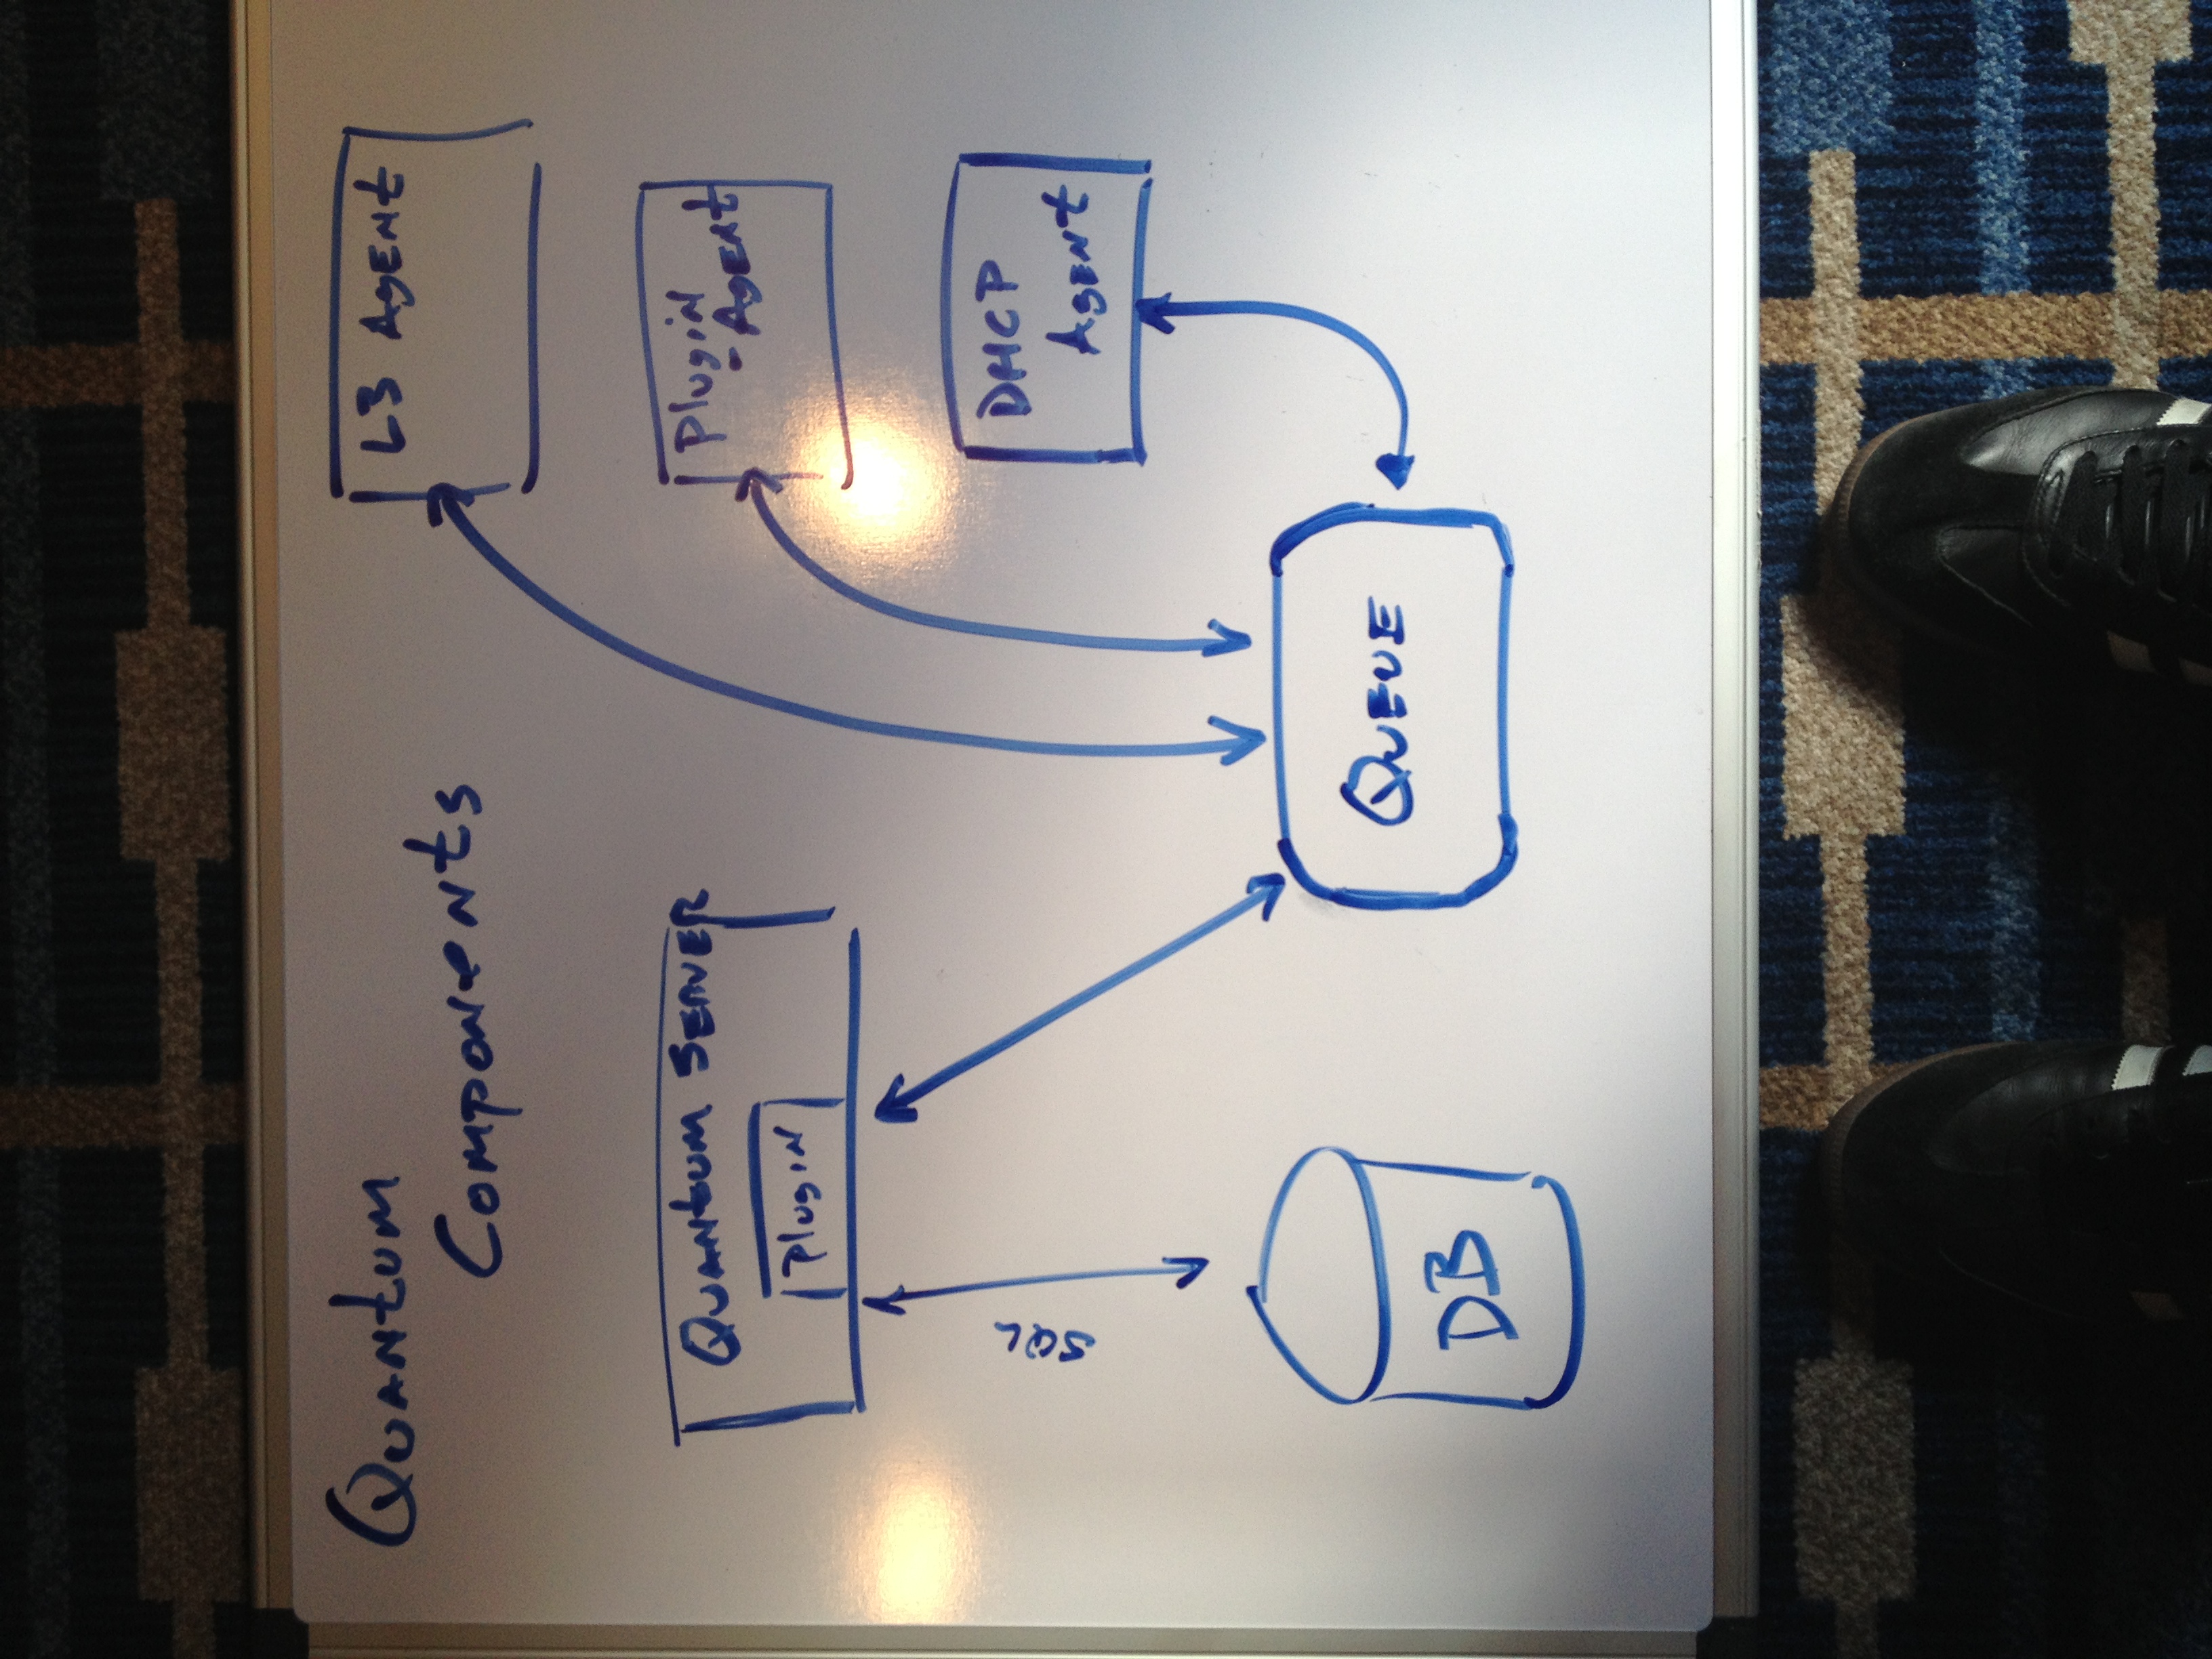 Quantum
Components
L3 Agent
Quantum Server
Plugin
Plugin
-Agent
SQL
DHCP
Agent
Queue
DB